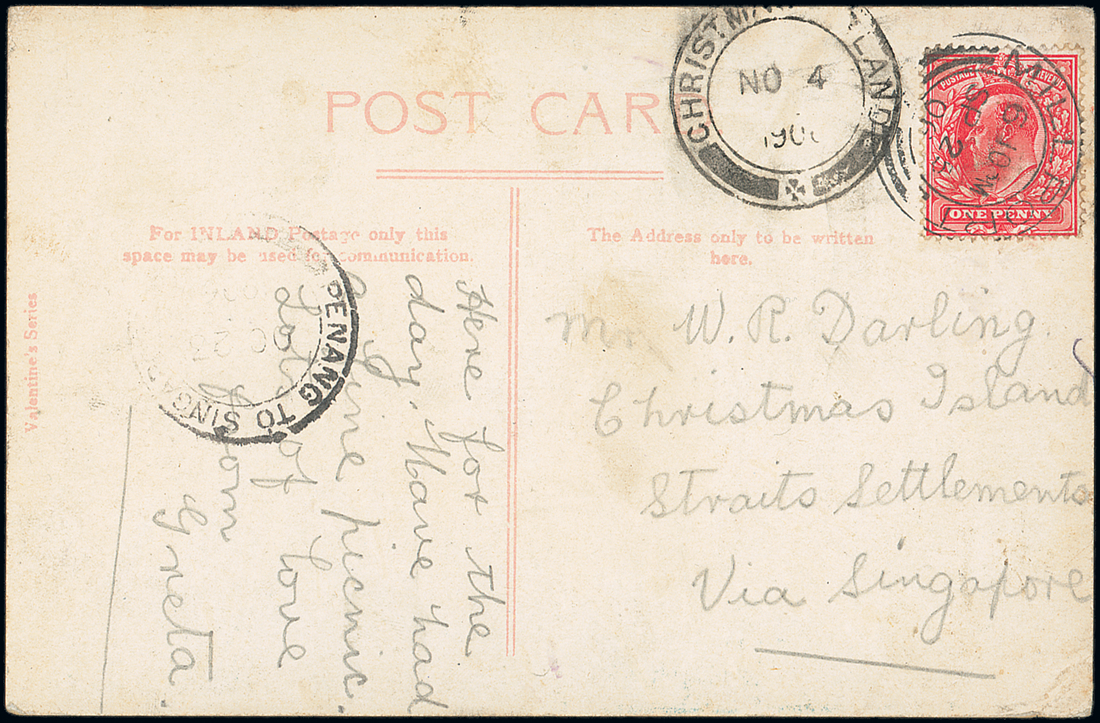 POST CARD
For INLAND Postage only this
space may be used for communication.
The Address only to be written
here.
Valentine's Series
CHRISTMAS ISLAND
NO 4
190
POSTAGE REVENUE
ONE PENNY
PENANG TO SING
OC 23
Mr W. R. Darling
Christmas Island
Straits Settlements
Via Singapore
Here for the
day, Have had
a fine picnic.
Lots of love
from
Greta.